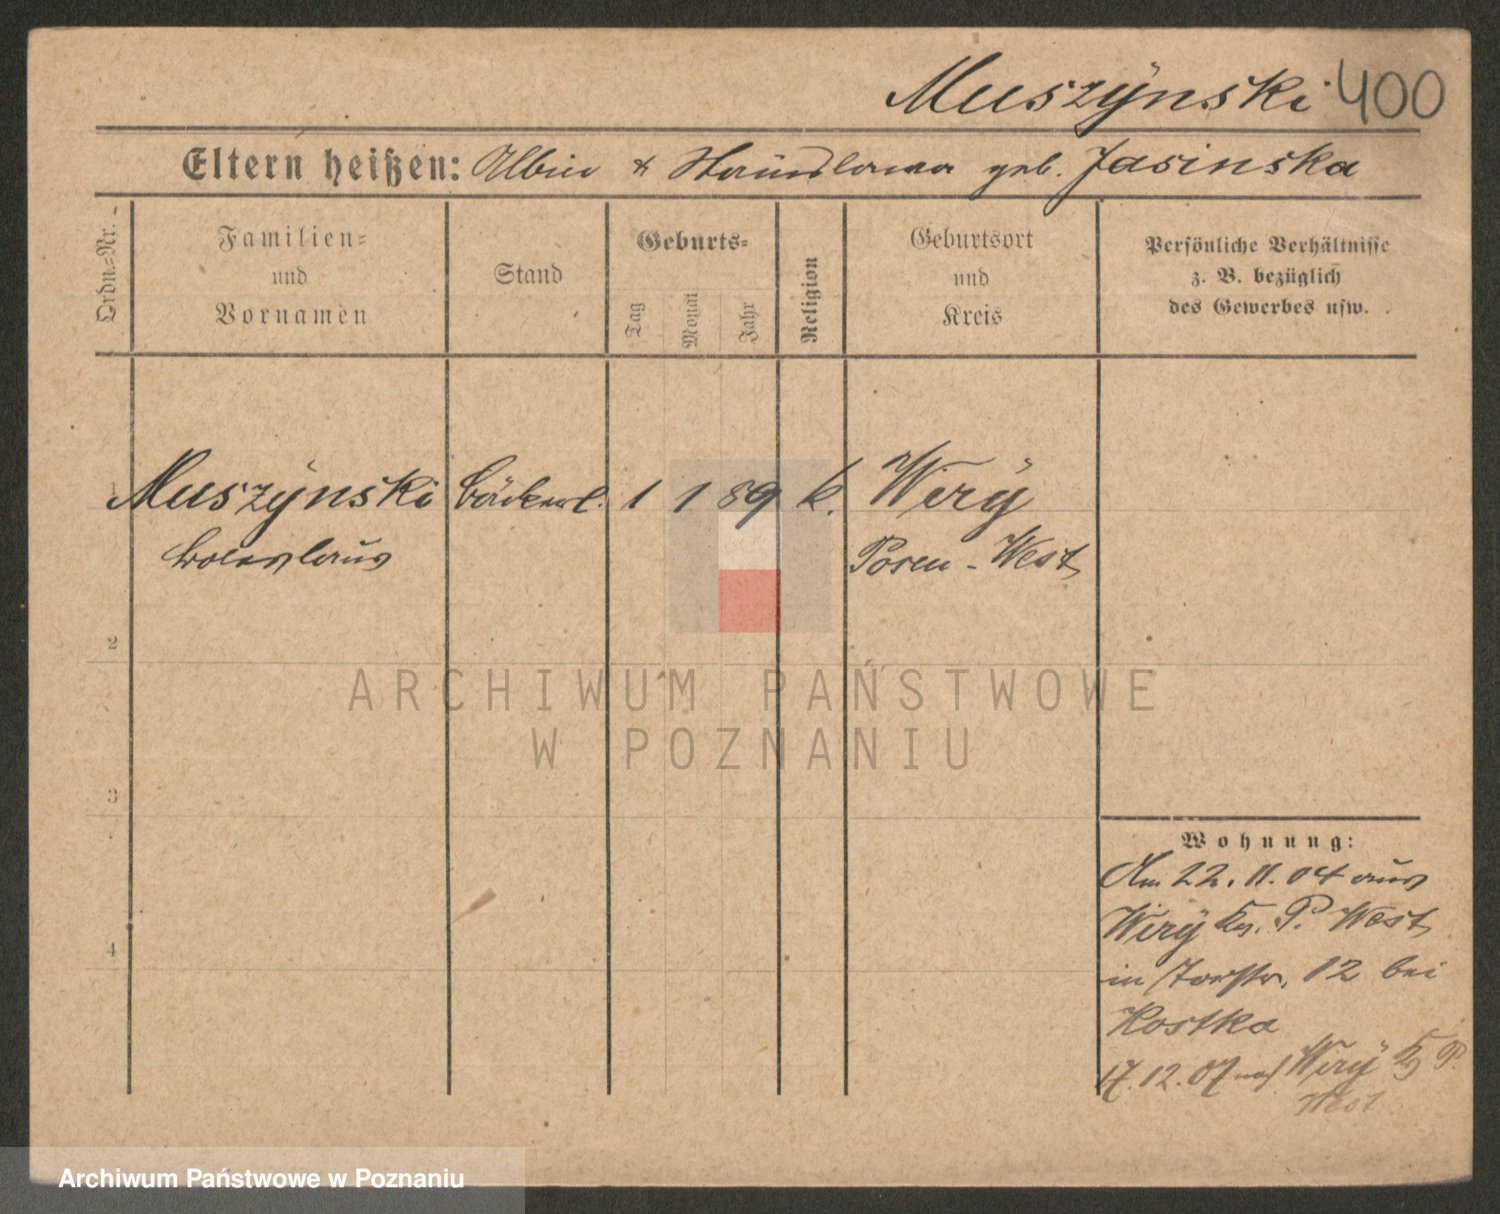 Muszÿnski 400
Eltern heißen: Albin & Stanislawa geb. Jasinska
Ordn.=Nr.
Familien=
und
Vornamen
Stand
Geburts=
Tag
Monat
Jahr
Religion
Geburtsort
und
Kreis
Persönliche Verhältnisse
z. B. bezüglich
des Gewerbes usw.
1
Muszÿnski Bäckerl. 1 1 89 k. Wirÿ
Boleslaus Posen - West
2
ARCHIWUM PAŃSTWOWE
W POZNANIU
3
Wohnung:
Am 22. 11. 04 aus
Wirÿ Kr. P. West
4
in Torstr. 12 bei
Kostka
17. 12. 07 nach Wirÿ Kr P.
West
Archiwum Państwowe w Poznaniu